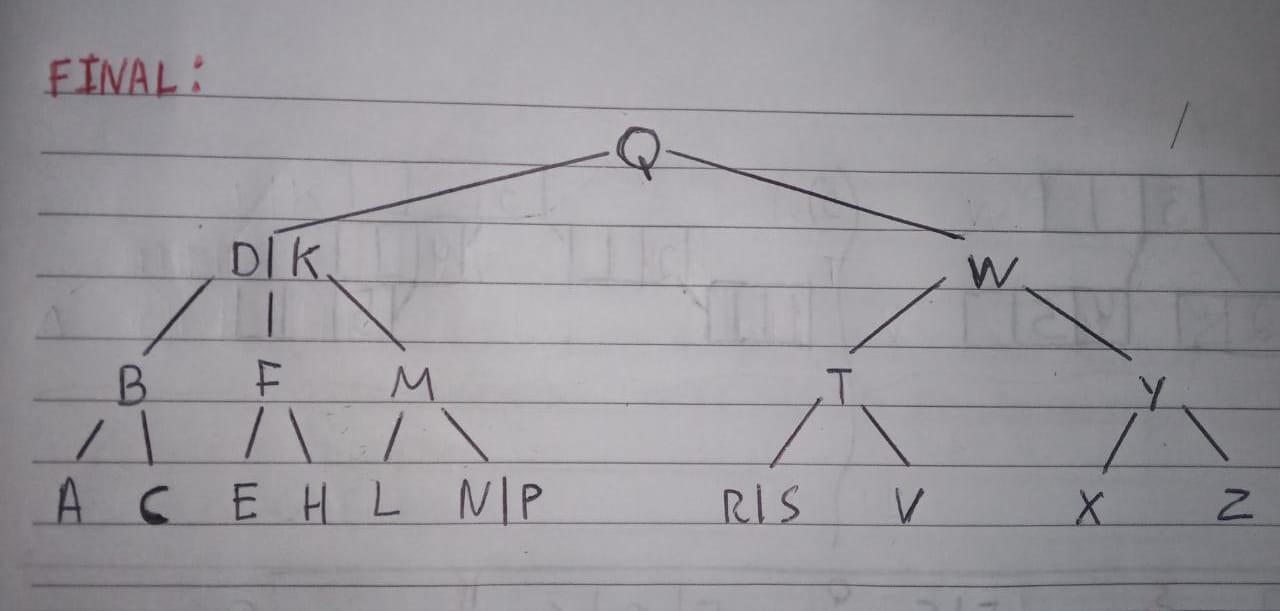 FINAL:
Q
D|K W
B F M T Y
A C E H L N|P R|S V X Z